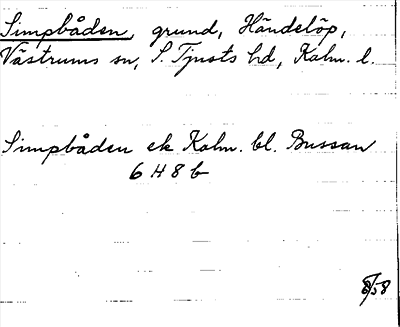 Simpbåden, grund, Händelöp,
Västrums sn, S. Tjusts hd, Kalm. l.
Simpbåden ek Kalm. bl. Bussan
6 H 8 b
8/58